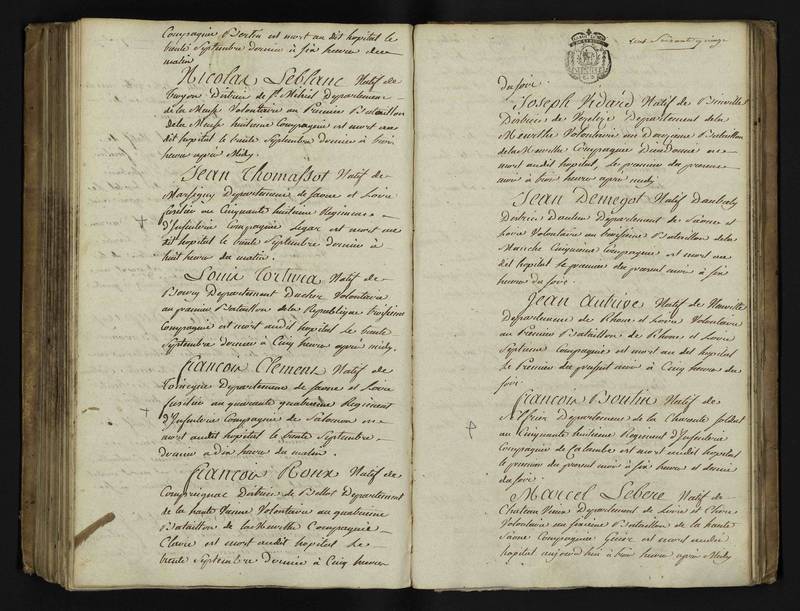 Compagnie Bertin est mort au dit hopital le
trente Septembre dernier à six heures du
matin
Nicolas Leblanc Natif de
Troyon District de St. Mihiel Departement
de la Meuse Volontaire au Premier Bataillon
de la Meuse huitieme Compagnie est mort au
dit hopital le trente Septembre dernier à trois
heures après Midy.
Jean Thomassot Natif de
Marsigny Departement de Saone et Loire
fusilier au Cinquante huitieme Regiment
d'Infanterie Compagnie Segar est mort au
dit hopital le trente Septembre dernier à
huit heures du matin.
Louis Natif de
Departement Volontaire
au premier Bataillon de la Republique troisieme
Compagnie est mort audit hopital le trente
Septembre dernier à Cinq heures après midy.
françois Clement Natif de
Departement de Saone et Loire
fusilier au quarante quatrieme Regiment
d'Infanterie Compagnie de Salomon
mort audit hopital le trente Septembre
dernier à dix heures du matin.
françois Roux Natif de
Compreignac District de Bellac Departement
de la haute Vienne Volontaire au quatrieme
Bataillon de la Meurthe Compagnie
Claire est mort audit hopital le
trente Septembre dernier à Cinq heures
cent Soixante quinze
du soir.
Joseph Vidard Natif de
District de Vezelize Departement de la
Meurthe Volontaire au Bataillon
de la Meurthe Compagnie Dieudonné
mort audit hopital, le premier du present
mois à trois heures après midy
Jean Demegot Natif
District Departement de Saone et
Loire Volontaire au troisieme Bataillon de la
Manche Cinquieme Compagnie est mort au
dit hopital le premier du present mois à six
heures du soir.
Jean Autrive Natif de Neuville
Departement de Rhone et Loire Volontaire
au Premier Bataillon de Rhone et Loire
Septieme Compagnie est mort au dit hopital
le Premier du present mois à Cinq heures du
soir
françois Boutin Natif de
Departement de la Charente soldat
au Cinquante huitieme Regiment d'Infanterie
Compagnie de Calambe est mort audit hopital
le premier du present mois à six heures et demie
du soir.
Marcel Lebere Natif de
Chateau Departement de
Volontaire au Bataillon de la haute
Saone Compagnie est mort audit
hopital aujourd'hui à trois heures après Midy